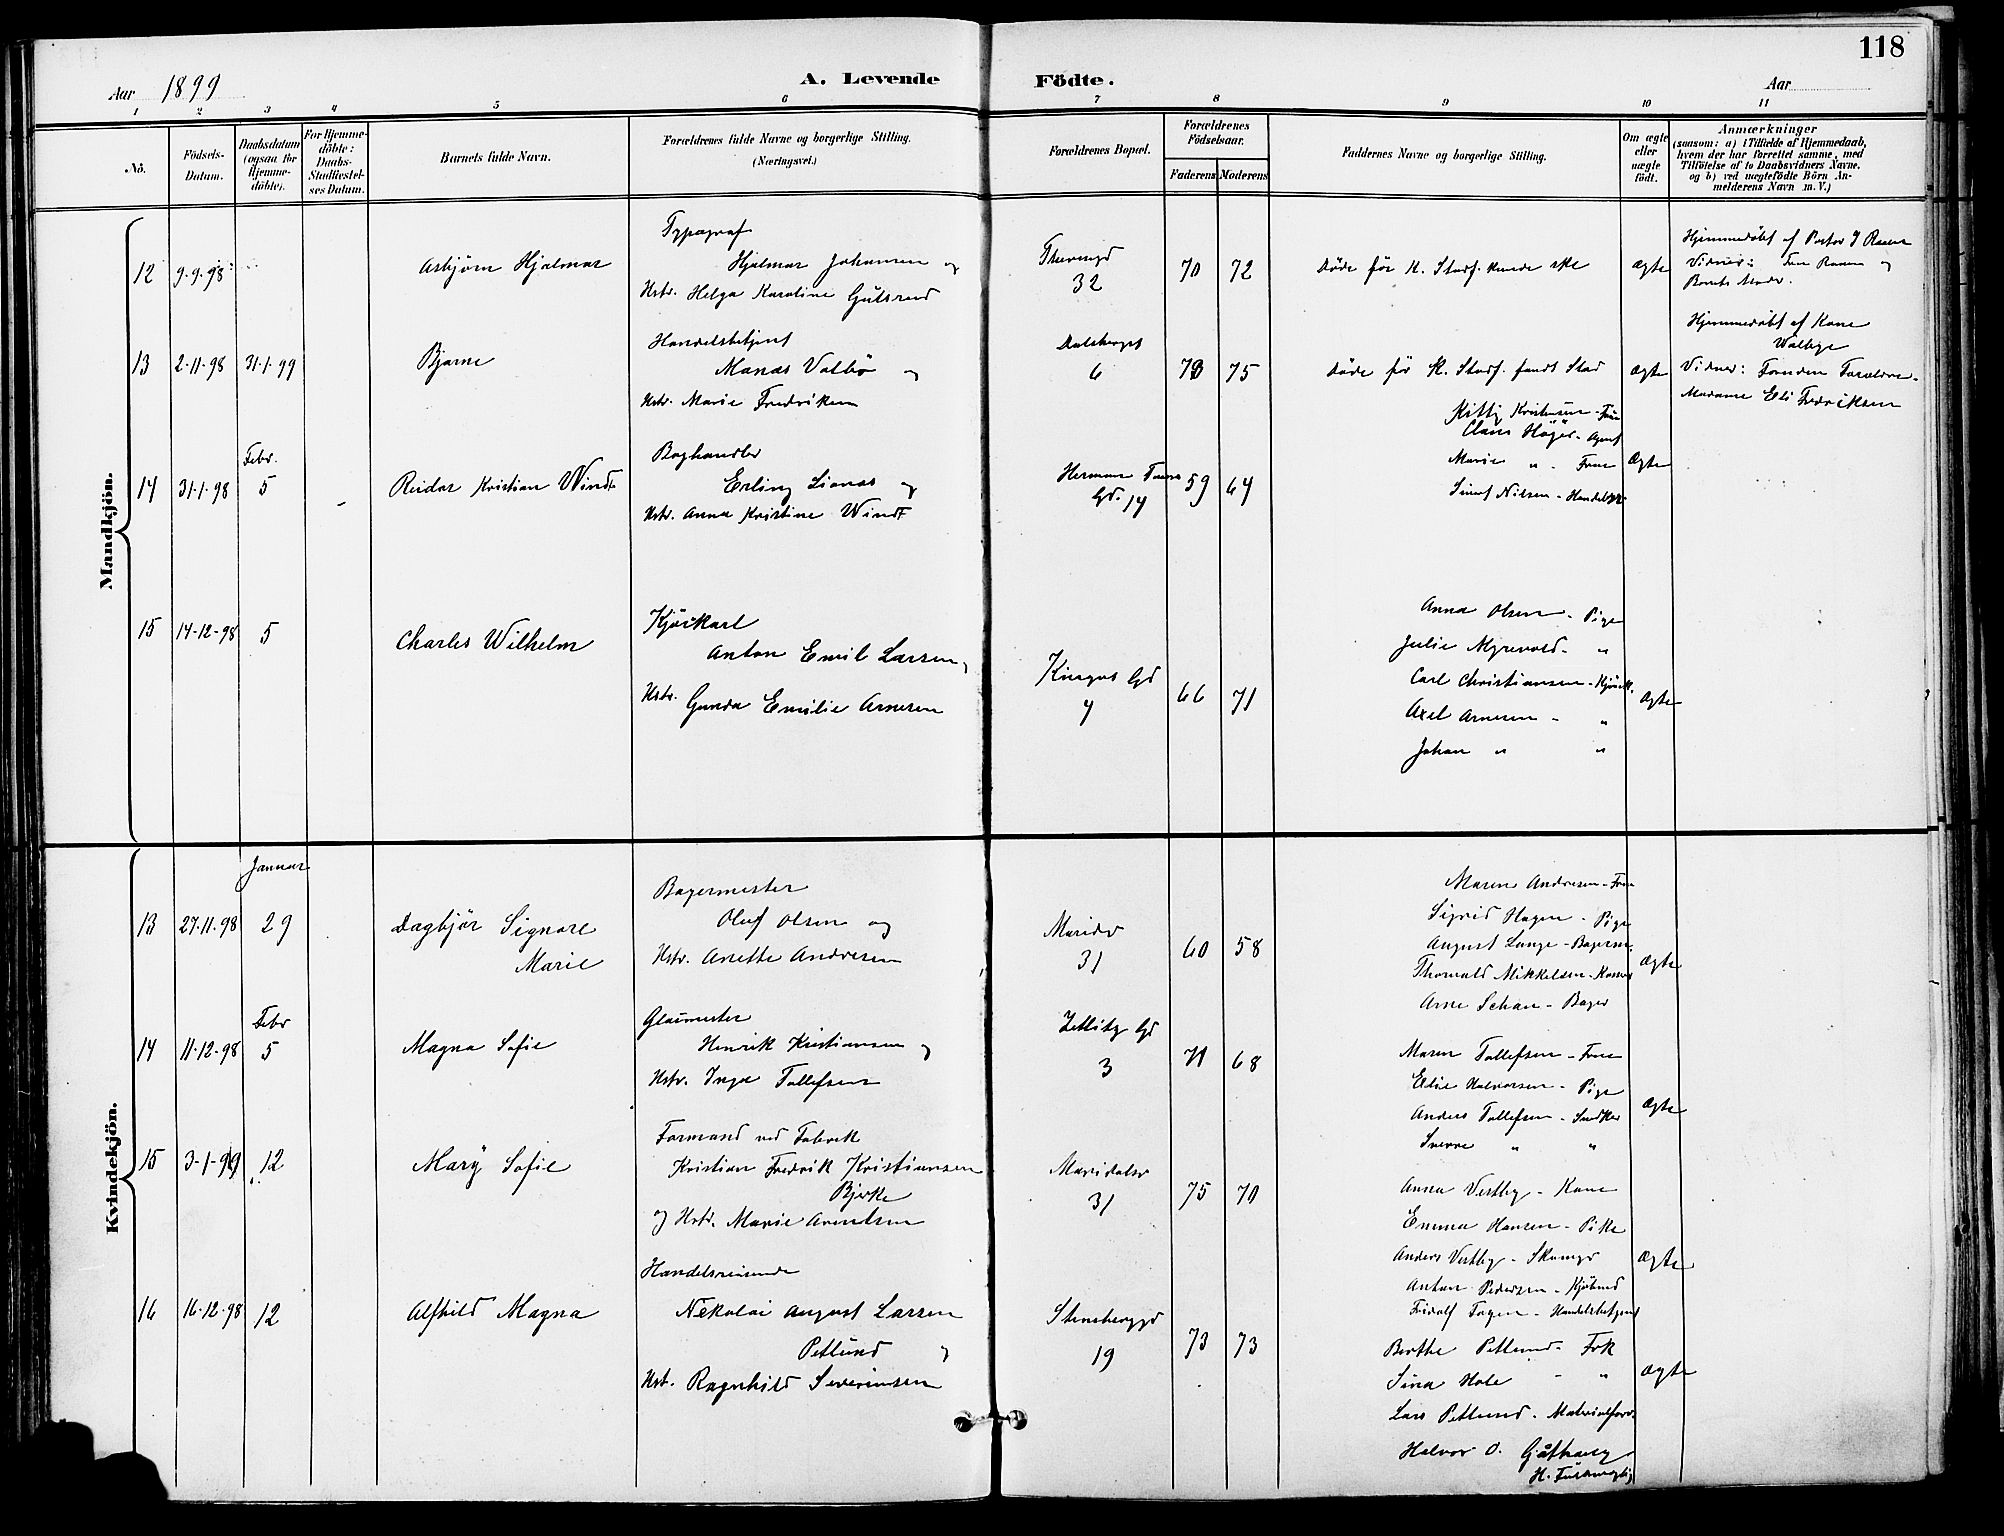 118
Aar 1899
A. Levende Födte.
Aar
1 2 3 4 5 6 7 8 9 10 11
No.
Födsels-Datum.
Daabsdatum (ogsaa for Hjemme-döbte).
For Hjemme-döbte: Daabs-Stadfæstel-ses Datum.
Barnets fulde Navn.
Forældrenes fulde Navne og borgerlige Stilling.
(Næringsvei.)
Forældrenes Bopæl.
Forældrenes Födselsaar.
Faderens Moderens
Faddernes Navne og borgerlige Stilling.
Om ægte eller uægte födt.
Anmærkninger
(saasom: a) i Tilfælde af Hjemmedaab, hvem der har forrettet samme, med Tilföielse af to Daabsvidners Navne. og b) ved uægtefödte Börn An-melderens Navn m. V.)
Mandkjön.
12 9-9-98 Asbjørn Hjalmar
Typograf
Hjalmar Johansen og
Hstr. Helga Karoline Gulsrud
32
70 72
Døde før K. Stadf. kunde ske
Ægte
Hjemmedøbt af Pastor
Vidner: og
Barnets Moder.
13 2-11-98 31-1-99 Bjarne
Handelsbetjent
Monas Valbö og
Hstr. Marie Fredriksen
Dalsberget
6
75
Døde før K. Stadf. fandt Sted
Ægte
Hjemmedøbt af Kone
Walbye
Vidner: Foruden Forældre
Madame Eli Fredriksen
14 31-1-98 Febr. 5 Reidar Kristian Windt
Boghandler
Erling Lianas og
Hstr. Anna Kristine Windt
Gd. 14
59 64
Kitty Kristensen - Frue
Claus Höyer - Agent
Marie " - Frue
Nilsen -
Ægte
15 14-12-98 5 Charles Wilhelm
Kjörkarl
Anton Emil Larsen,
Hstr. Gunda Emilie Arnesen
Kingos Gd
4
66 71
Anna Olsen - Pige
Julie Myrvold - "
Carl Christiansen - Kjörk.
Axel Arnesen - "
Johan " "
Ægte
Kvindekjön.
Januar
13 27-11-98 29 Dagbjør Signore
Marie
Bagermester
Oluf Olsen og
Hstr. Anette Andresen
Maridv
31
60 58
Maren Andresen - Frue
Sigrid Hagen - Pige
August Lange - Bagerm.
Thorvald Mikkelsen -
Arne Schau - Bager
Ægte
Febr
14 11-12-98 5 Magna Sofie
Glasmester
Henrik Kristiansen og
Hstr. Inga Tollefsen
Zetlitz Gd
3
71 68
Maren Tollefsen - Frue
Elie Halvorsen - Pige
Anders Tollefsen - Snedker
Sverre " "
Ægte
15 3-1-99 12 Mary Sofie
Formand ved Fabrik
Kristian Fredrik Kristiansen
Bjerke
og Hstr. Marie Arentsen
Maridalsv
31
75 70
Anna Vestby - Kone
Emma Hansen - Pike
Anders Vestby -
Anton Pedersen - Kjöbmd
Ægte
16 16-12-98 12 Alfhild Magna
Handelsreisende
Nikolai August Larsen
Petlund og
Hst. Ragnhild Severinsen
Stensberggd
19
73 73
Fridolf Fagen - Handelsbetjent
Berthe Petlund - Frk
Sina Hole - "
Lars Petlund - Materialforv.
Halvor O.
Ægte